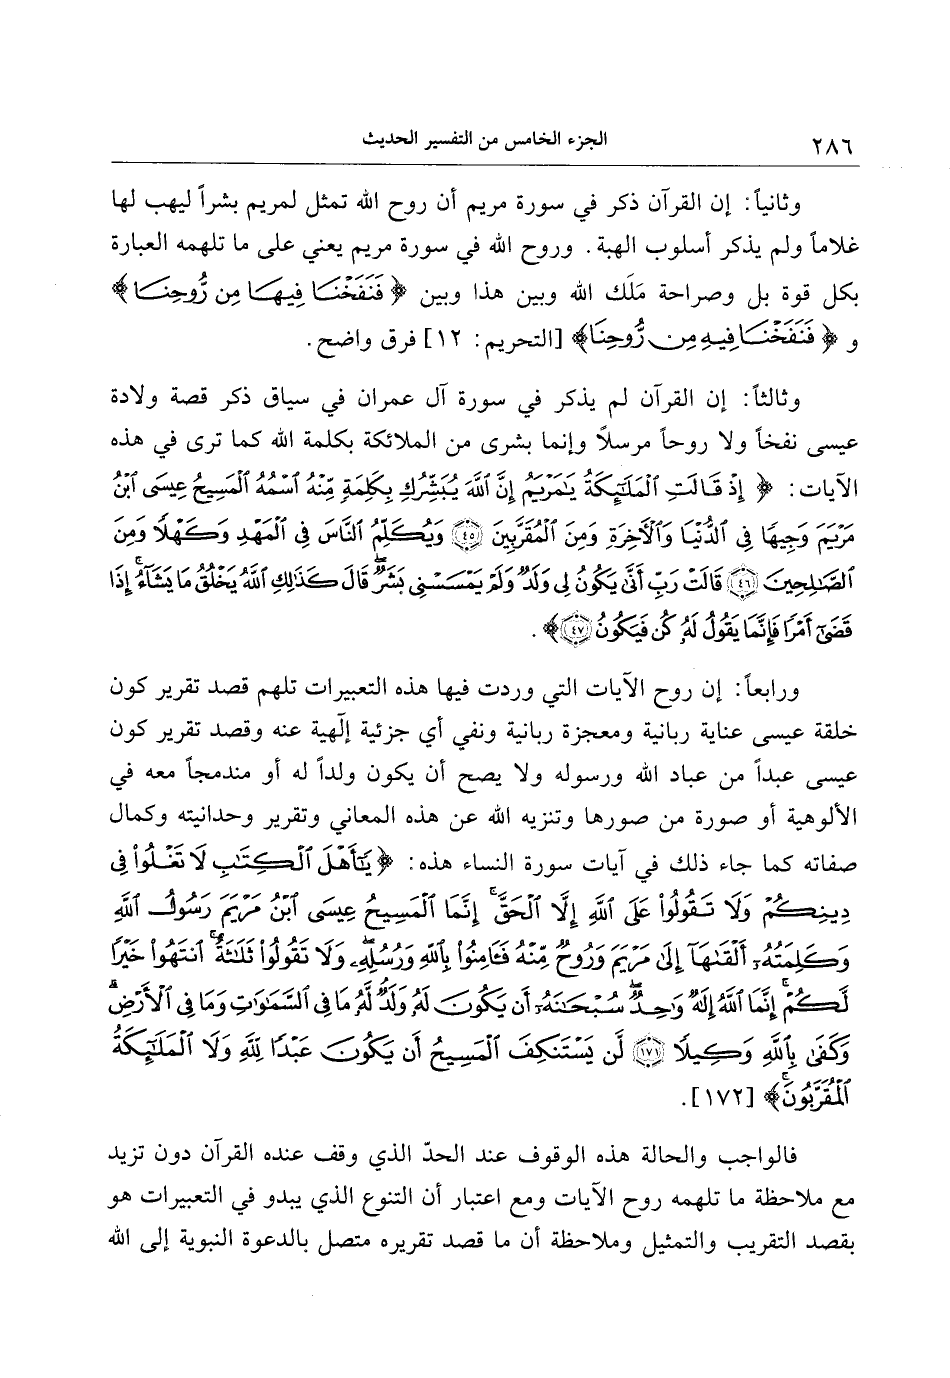 ٢٨٦
الجزء الخامس من التفسير الحديث
وثانياً: إن القرآن ذكر في سورة مريم أن روح الله تمثل لمريم بشراً ليهب لها
غلاماً ولم يذكر أسلوب الهبة. وروح الله في سورة مريم يعني على ما تلهمه العبارة
بكل قوة بل وصراحة مَلَك الله وبين هذا وبين ﴿فَنَفَخْنَا فِيهَا مِن رُّوحِنَا﴾
و ﴿فَنَفَخْنَا فِيهِ مِن رُّوحِنَا﴾ [التحريم: ١٢] فرق واضح.
وثالثاً: إن القرآن لم يذكر في سورة آل عمران في سياق ذكر قصة ولادة
عيسى نفخاً ولا روحاً مرسلاً وإنما بشرى من الملائكة بكلمة الله كما ترى في هذه
الآيات: ﴿إِذْ قَالَتِ ٱلْمَلَٰٓئِكَةُ يَٰمَرْيَمُ إِنَّ ٱللَّهَ يُبَشِّرُكِ بِكَلِمَةٍ مِّنْهُ ٱسْمُهُ ٱلْمَسِيحُ عِيسَى ٱبْنُ
مَرْيَمَ وَجِيهًا فِى ٱلدُّنْيَا وَٱلْءَاخِرَةِ وَمِنَ ٱلْمُقَرَّبِينَ ۝٤٥ وَيُكَلِّمُ ٱلنَّاسَ فِى ٱلْمَهْدِ وَكَهْلًا وَمِنَ
ٱلصَّٰلِحِينَ ۝٤٦ قَالَتْ رَبِّ أَنَّىٰ يَكُونُ لِى وَلَدٌ وَلَمْ يَمْسَسْنِى بَشَرٌ ۖ قَالَ كَذَٰلِكِ ٱللَّهُ يَخْلُقُ مَا يَشَآءُ ۚ إِذَا
قَضَىٰٓ أَمْرًا فَإِنَّمَا يَقُولُ لَهُۥ كُن فَيَكُونُ ۝٤٧﴾.
ورابعاً: إن روح الآيات التي وردت فيها هذه التعبيرات تلهم قصد تقرير كون
خلقة عيسى عناية ربانية ومعجزة ربانية ونفي أي جزئية إلٓهية عنه وقصد تقرير كون
عيسى عبداً من عباد الله ورسوله ولا يصح أن يكون ولداً له أو مندمجاً معه في
الألوهية أو صورة من صورها وتنزيه الله عن هذه المعاني وتقرير وحدانيته وكمال
صفاته كما جاء ذلك في آيات سورة النساء هذه: ﴿يَٰٓأَهْلَ ٱلْكِتَٰبِ لَا تَغْلُوا۟ فِى
دِينِكُمْ وَلَا تَقُولُوا۟ عَلَى ٱللَّهِ إِلَّا ٱلْحَقَّ ۚ إِنَّمَا ٱلْمَسِيحُ عِيسَى ٱبْنُ مَرْيَمَ رَسُولُ ٱللَّهِ
وَكَلِمَتُهُۥٓ أَلْقَىٰهَآ إِلَىٰ مَرْيَمَ وَرُوحٌ مِّنْهُ ۖ فَـَٔامِنُوا۟ بِٱللَّهِ وَرُسُلِهِۦ ۖ وَلَا تَقُولُوا۟ ثَلَٰثَةٌ ۚ ٱنتَهُوا۟ خَيْرًا
لَّكُمْ ۚ إِنَّمَا ٱللَّهُ إِلَٰهٌ وَٰحِدٌ ۖ سُبْحَٰنَهُۥٓ أَن يَكُونَ لَهُۥ وَلَدٌ ۘ لَّهُۥ مَا فِى ٱلسَّمَٰوَٰتِ وَمَا فِى ٱلْأَرْضِ ۗ
وَكَفَىٰ بِٱللَّهِ وَكِيلًا ۝١٧١ لَّن يَسْتَنكِفَ ٱلْمَسِيحُ أَن يَكُونَ عَبْدًا لِّلَّهِ وَلَا ٱلْمَلَٰٓئِكَةُ
ٱلْمُقَرَّبُونَ ۚ﴾ [١٧٢].
فالواجب والحالة هذه الوقوف عند الحدّ الذي وقف عنده القرآن دون تزيد
مع ملاحظة ما تلهمه روح الآيات ومع اعتبار أن التنوع الذي يبدو في التعبيرات هو
بقصد التقريب والتمثيل وملاحظة أن ما قصد تقريره متصل بالدعوة النبوية إلى الله